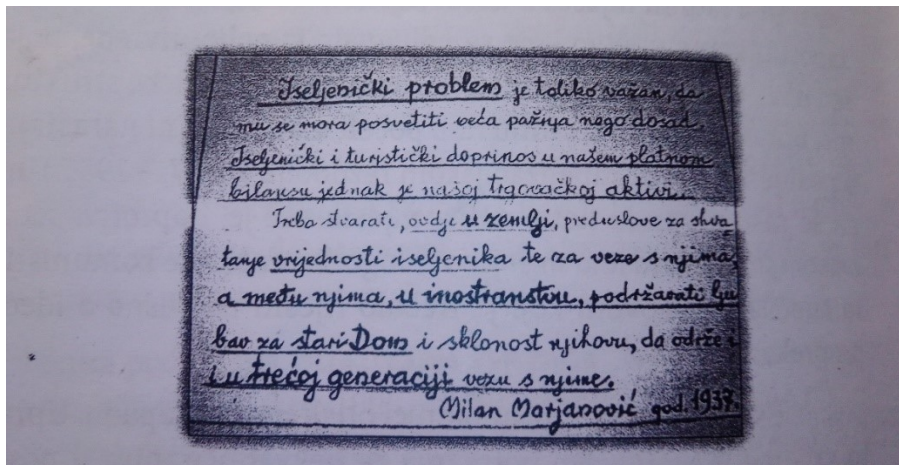 Iseljenički problem je toliko važan, da
mu se mora posvetiti veća pažnja nego dosad.
Iseljenički i turistički doprinos u našem platnom
bilansu jednak je našoj trgovačkoj aktivi.
Treba stvarati, ovdje u zemlji, preduslove za shva
tanje vrijednosti iseljenika te za veze s njima,
a među njima, u inostranstvu, podržavati lju
bav za stari Dom i sklonost njihovu, da održe i
i u trećoj generaciji vezu s njime.
Milan Marjanović god. 1937.